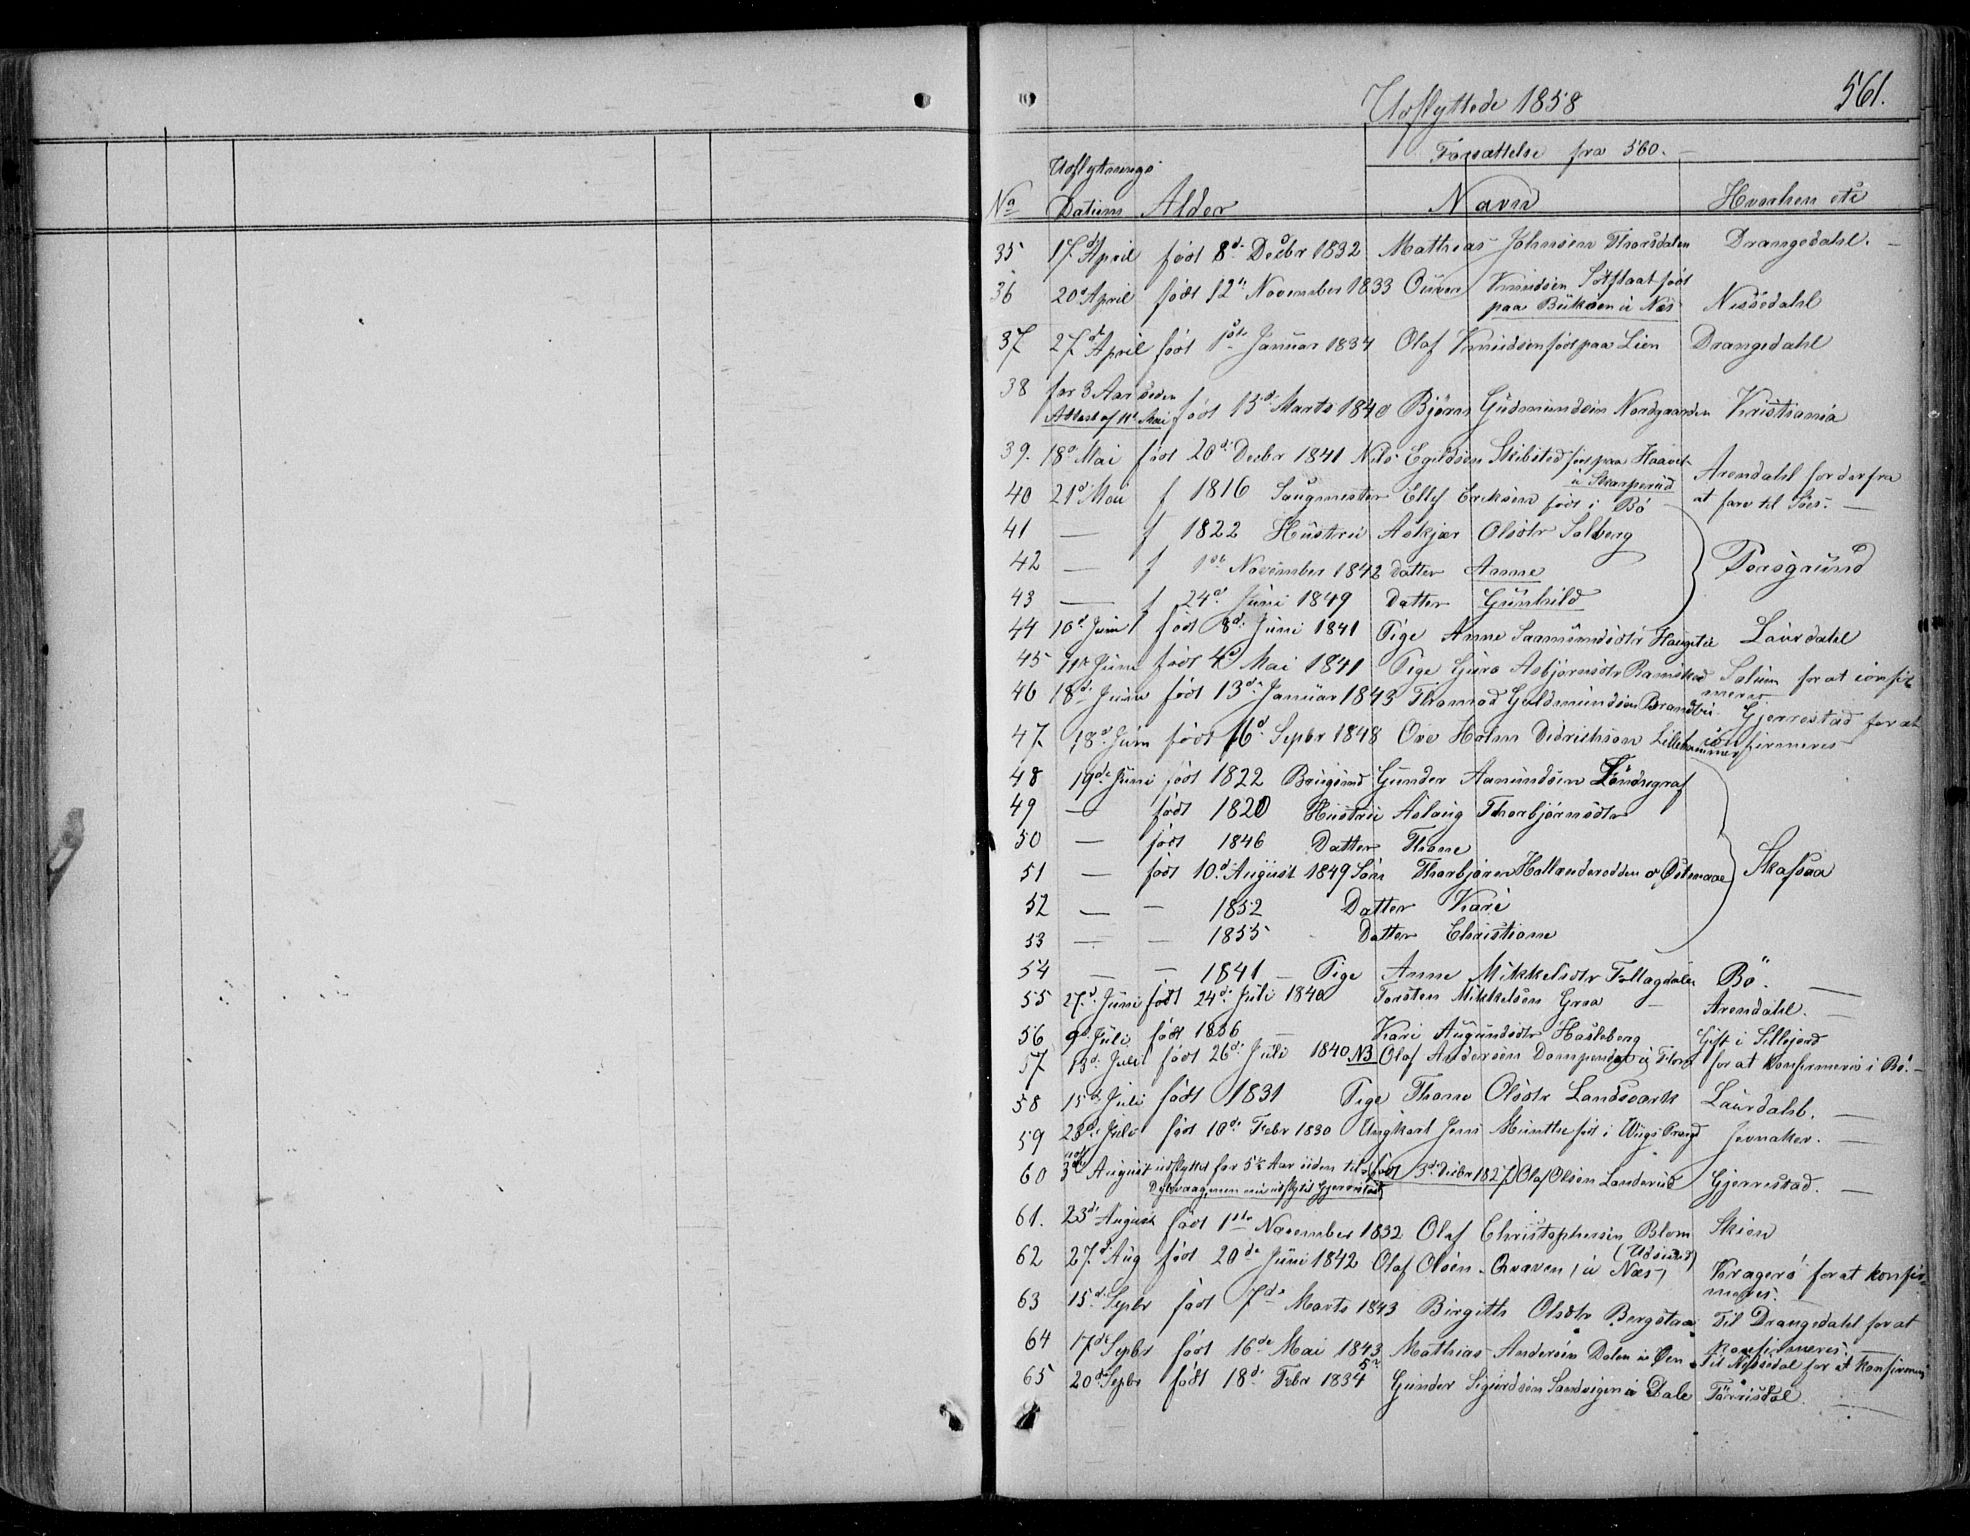 Udflyttede 1858
561.
Forsættelse fra 560.
Udflytnings
No Datum Alder Navn Hvorhen etc
35 17d April født 8d Decbr 1832 Mathias Johnsen Thorsdalen Drangedahl.
36 20d April født 12te November 1833 Knudsen født
paa i Næs Nissedahl
37 27d April født 1ste Januar 1834 Olaf Knudsen født paa Lien Drangedahl
38 for 3 Aar siden
Attest af 11te Mai født 13d Marts 1840 Bjørn Gudmundsen Nordgaarden Kristiania
39. 18d Mai født 20d Decbr 1841 Nils Egildsen Skibsted født paa
i Arendahl for derfra
40 21d Mai f 1816 Saugmester Ellef Eriksen født i Bø at fare til Søes.
41 — f 1822 Hustru Askjær Olsdtr Solberg
42 — f 1ste November 1842 datter Anne Porsgrund
43 — f 24d Juni 1849 Datter Gunhild
44 10d Juni født 8d Juni 1841 Pige Anne Saamundsdtr Laurdahl
45 11te Juni født 4d Mai 1841 Pige Guro Asbjørnsdtr Solum for at confir
meres
46 18d Juni født 13de Januar 1843 Thromod Guldmundsen Gjerrestad for at
47. 18d Juni født 16d Sepbr 1848 Ove Holm Didrichsen Lillehammer confirmeres
48 19de Juni født 1822 Brugsmd Gunder Aanundsen
49 — født 1820 Hustru Aslaug Thorbjørnsdtr
50 — født 1846 Datter Thone
51 — født 10d August 1849 Søn Thorbjørn Skafsaa
52 — — 1852 Datter Kari
53 — — 1855 Datter Christiane
54 — — 1841 — Pige Anne Mikkelsdtr Bø.
55 27d Juni født 24d Juli 1840 Torsten Mikkelsen Graa Arendahl.
56 9d Juli født 1836 — Kari Augundsdtr Hasleberg Gift i Sillejord
57 13d Juli født 26d Juli 1840 NB Olaf Andersen for at konfirmeres i Bø.
58 15d Juli født 1831 Pige Thone Olsdtr Landsvark Laurdahl.
59 28d Juli født 10de Febr 1830 Ungkarl Jens Munthe født i Jevnaker.
60 3die August udflyttet for 5½ Aar siden til født 3d Decbr 1827) Olaf Olsen Landerud Gjerrestad.
Dybvaag, men nu udfl. til Gjerrestad
61. 23d August født 1ste November 1832 Olaf Christophersen Blom Skien
62 27d Aug født 20de Juni 1842 Olaf Olsen Qvaven i Næs Kragerø for at konfir-
meres.
63 15d Sepbr født 7de Marts 1843 Birgithe Olsdtr Bergstaa Til Drangedahl for at
konfirmeres.
64 17de Sepbr født 16de Mai 1843 Mathias Andersen Dalen Til Nissedal for at konfirmeres
65 20d Sepbr født 18d Febr 1834 Gunder Sigurdsen Sandvigen i Dale Tørrisdal.